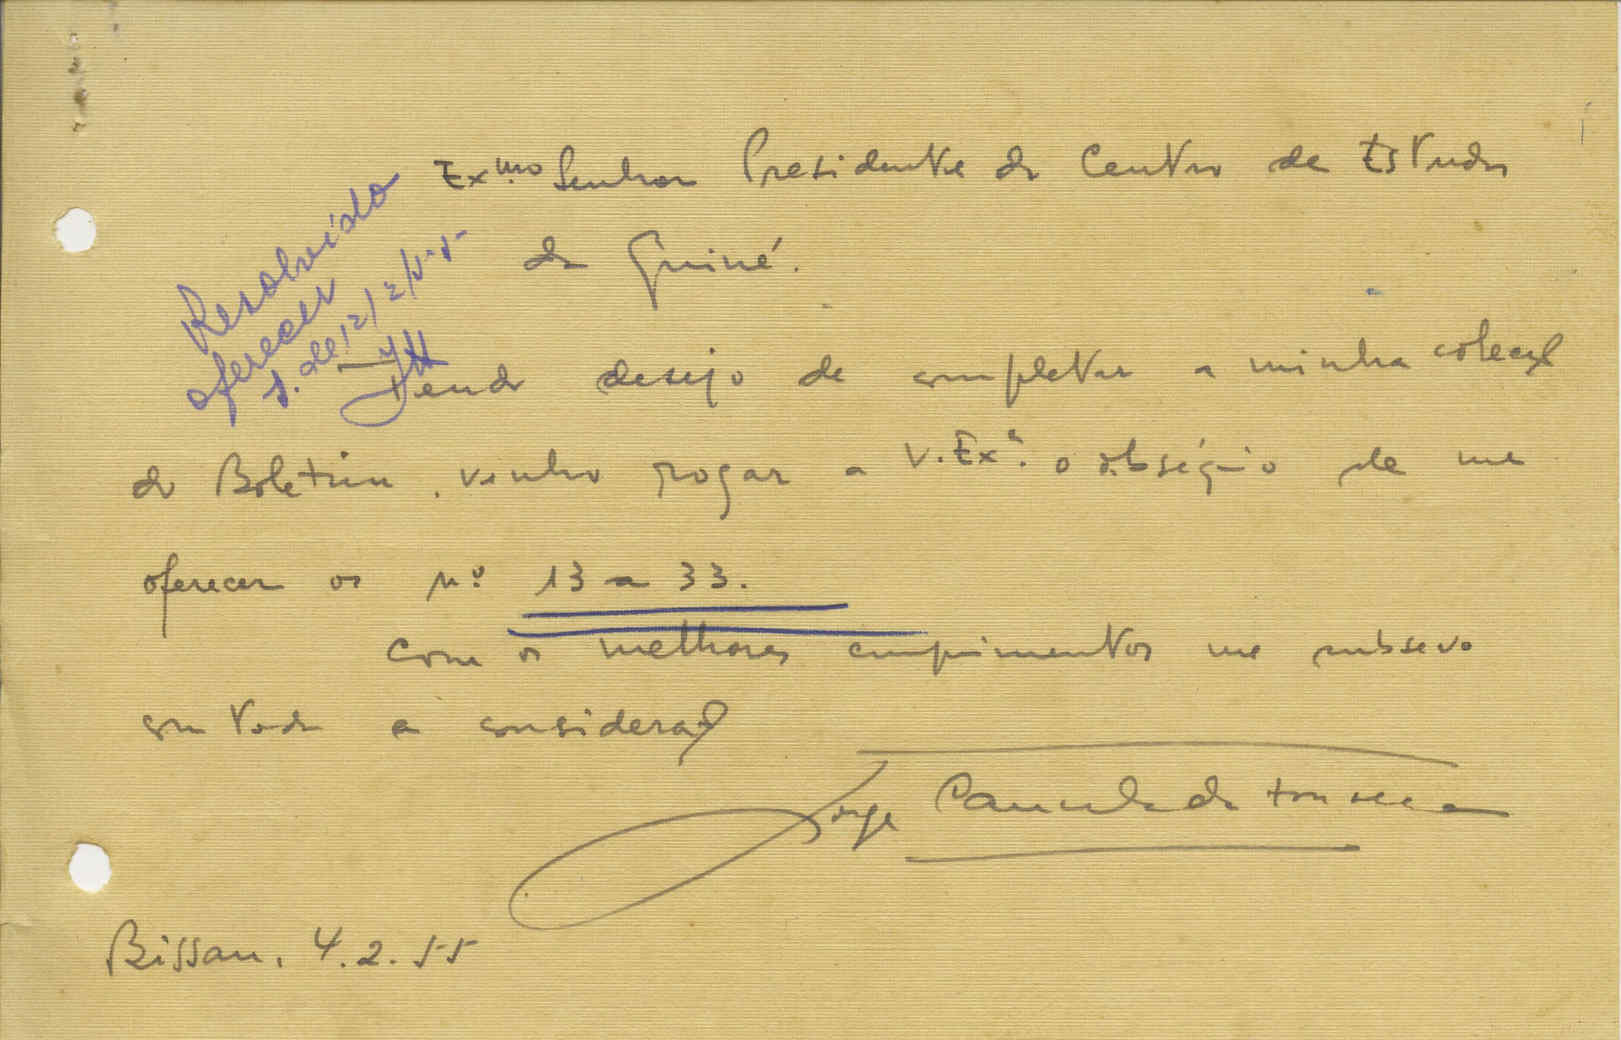 Exmo Senhor Presidente do Centro de Estudos
da Guiné.
Resolvido
oferecer
S. de 12/2/55
Tendo desejo de completar a minha colecção
do Boletim, venho rogar a V. Exª. o obséquio de me
oferecer os nº 13 a 33.
Com os melhores cumprimentos me subscrevo
com toda a consideração
Jorge da Fonseca
Bissau, 4.2.55